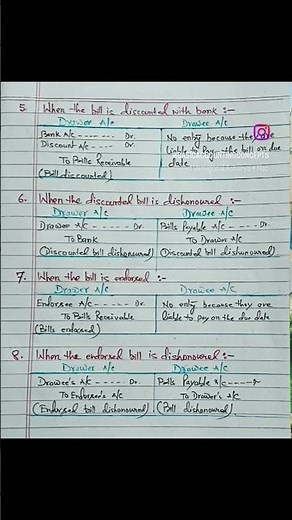 5. When the bill is discounted with bank :-
Drawer A/c Drawee A/c
Bank A/c ------- Dr. No entry because they are
Discount A/c ---- Dr. liable to pay the bill on due
To Bills Receivable date
(Bill discounted)
ACCOUNTINGCONCEPTS
6. When the discounted bill is dishonoured :-
Drawer A/c Drawee A/c
Drawee A/c ----- Dr. Bills Payable A/c ---- Dr.
To Bank To Drawer A/c
(Discounted bill dishonoured) (Discounted bill dishonoured)
7. When the bill is endorsed :-
Drawer A/c Drawee A/c
Endorsee A/c ----- Dr. No entry because they are
To Bills Receivable liable to pay on the due date
(Bills endorsed)
8. When the endorsed bill is dishonoured :-
Drawer A/c Drawee A/c
Drawee's A/c ----- Dr. Bills Payable A/c ----
To Endorsee's A/c To Drawer's A/c
(Endorsed bill dishonoured) (Bill dishonoured)